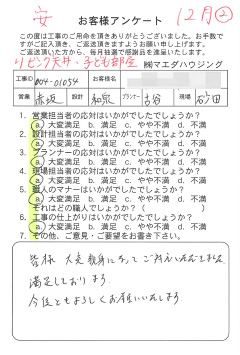 安
12月②
お客様アンケート
この度は工事のご用命を頂きありがとうございました。お手数で
すがご記入頂き、ご返送頂きますようお願い申し上げます。
ご返送頂いた方から、毎月抽選で感謝品を進呈いたします。
リビング天井・子ども部屋
㈱マエダハウジング
工事ID 004-01054 お客様名
営業 赤坂 設計 和泉 プランナー 古谷 現場 砂田
1. 営業担当者の応対はいかがでしたでしょうか?
a. 大変満足 b. 満足 c. やや不満 d. 不満
2. 設計担当者の応対はいかがでしたでしょうか?
a. 大変満足 b. 満足 c. やや不満 d. 不満
3. プランナーの応対はいかがでしたでしょうか?
a. 大変満足 b. 満足 c. やや不満 d. 不満
4. 現場担当者の応対はいかがでしたでしょうか?
a. 大変満足 b. 満足 c. やや不満 d. 不満
5. 職人のマナーはいかがでしたでしょうか?
a. 大変満足 b. 満足 c. やや不満 d. 不満
それはどの職人でしょうか?(
6. 工事の仕上がりはいかがでしたでしょうか?
a. 大変満足 b. 満足 c. やや不満 d. 不満
7. その他、ご意見・ご要望をお書き下さい。
皆様 大変親身になってご対応いただきました
満足しております
今後ともよろしくお願いいたします